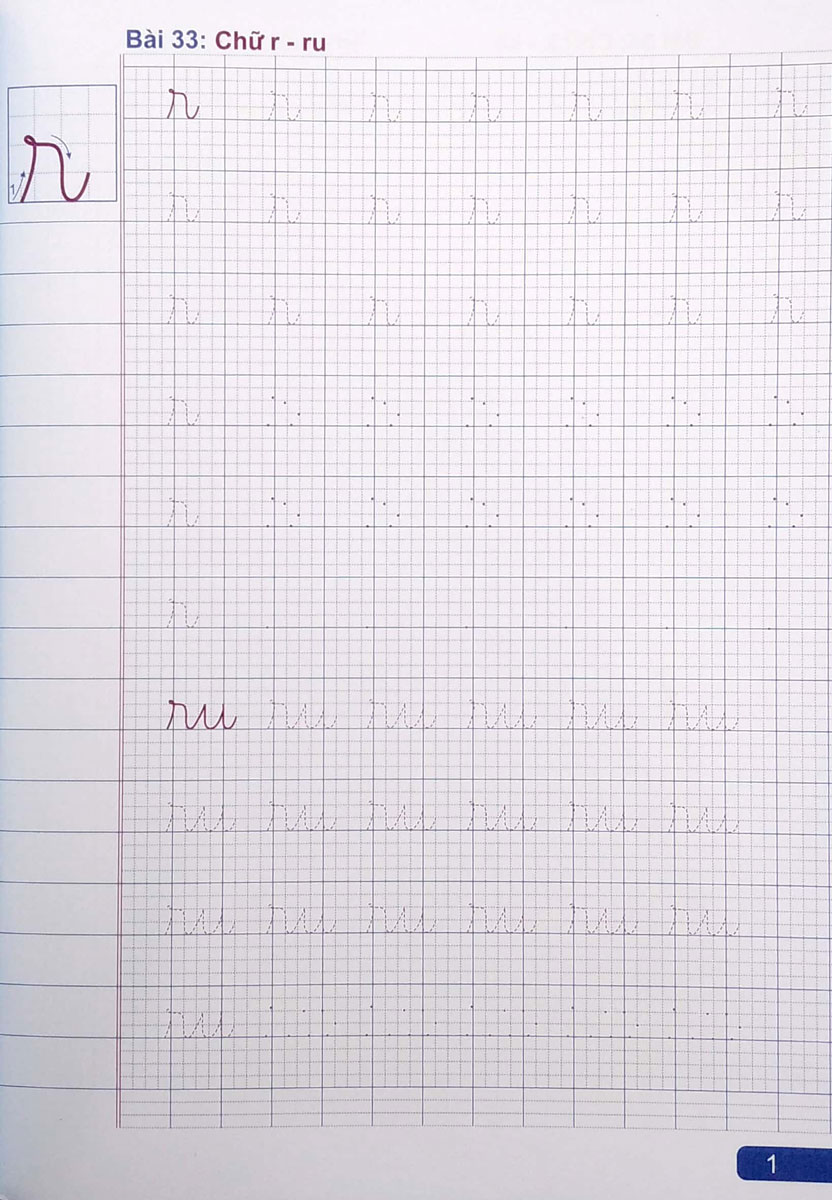 Bài 33: Chữ r - ru
1
r r r r r r r
r r r r r r r
r r r r r r r
r
r
r
ru ru ru ru ru ru
ru ru ru ru ru ru
ru ru ru ru ru ru
ru
1